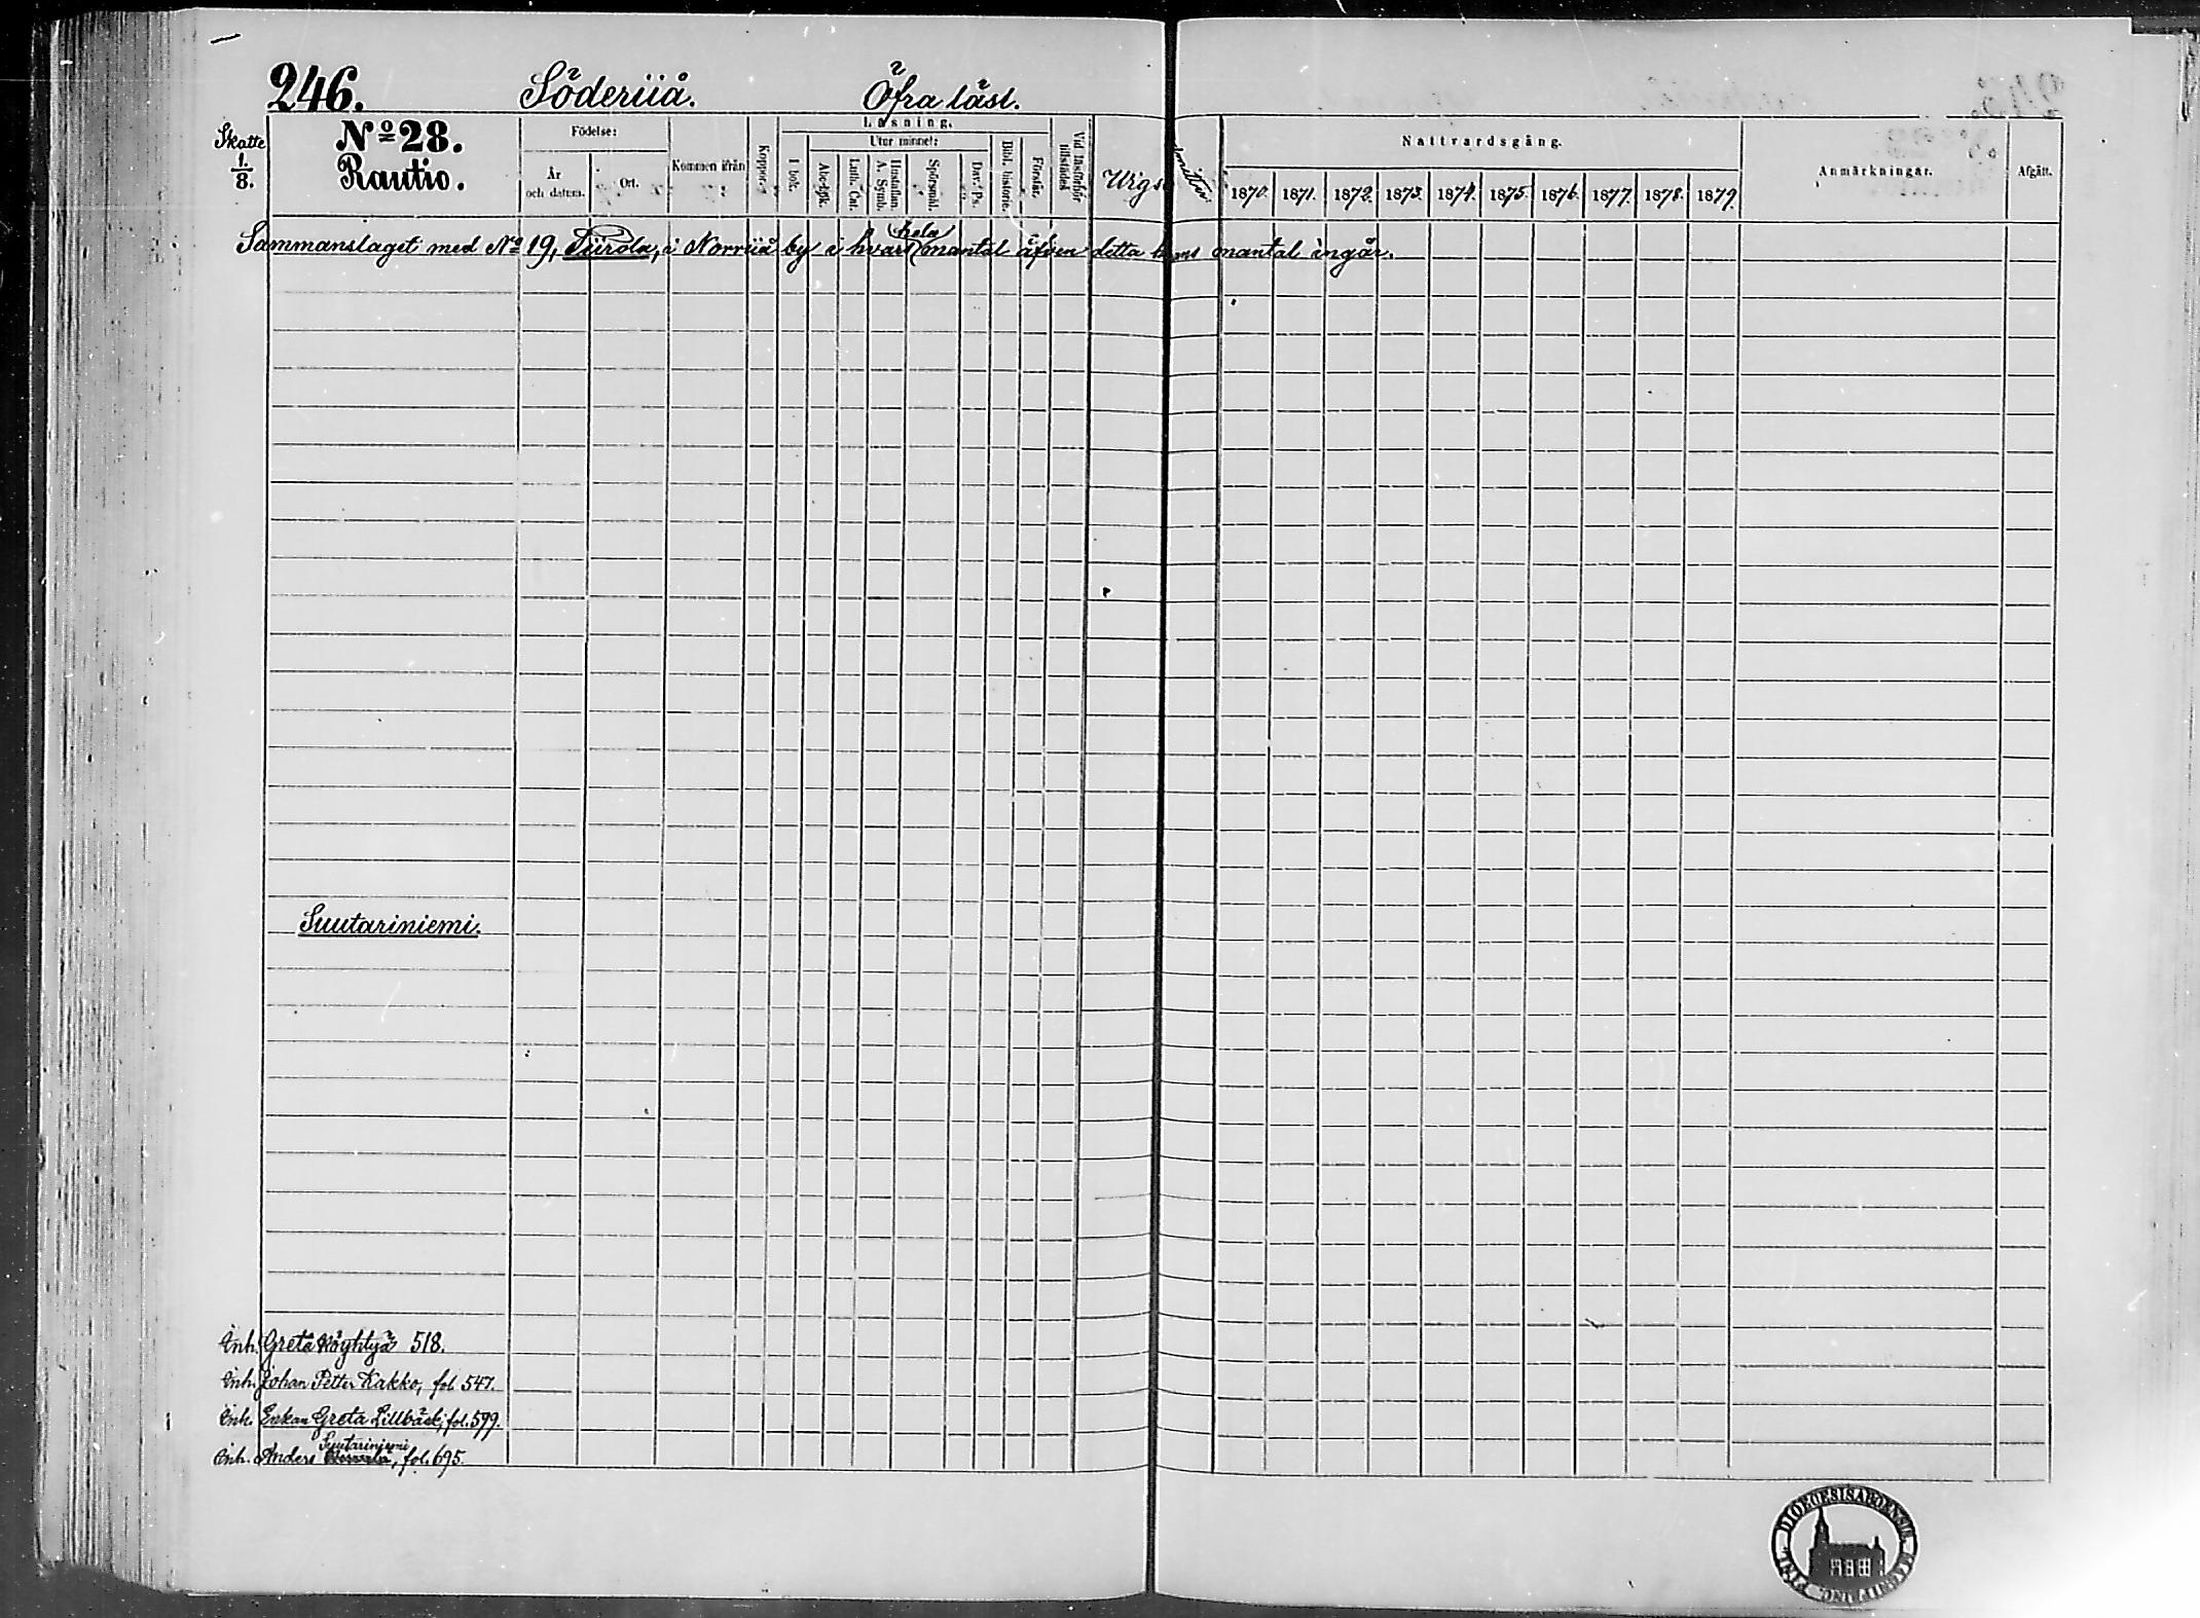 246. Söderiiå. Öfra läsl.
Skatte 1/8. No 28. Rautio.
Födelse:
År och datum.
Ort.
Kommen ifrån
Koppor.
Läsning.
I bok.
Utur minnet:
Abc-bok.
Luth. Cat.
Hustaflan. A. Symb.
Spörsmål.
Dav. Ps.
Bibl. historie.
Förslår.
Vid läsförhör tillstädes
Nattvardsgång.
1870. 1871. 1872. 1873. 1874. 1875. 1876. 1877. 1878. 1879.
Anmärkningar.
Afgått.
hela
Sammanslaget med No 19, i Norriiå by i hvars mantal äfven detta mantal ingår.
Suutariniemi.
Inh. Greta Köyhtyä 518.
Inh. Johan Petter Kakko, fol 547.
Inh. Enkan Greta Lillbäck, fol. 599.
Suutariniemi
Inh. Anders , fol. 695.